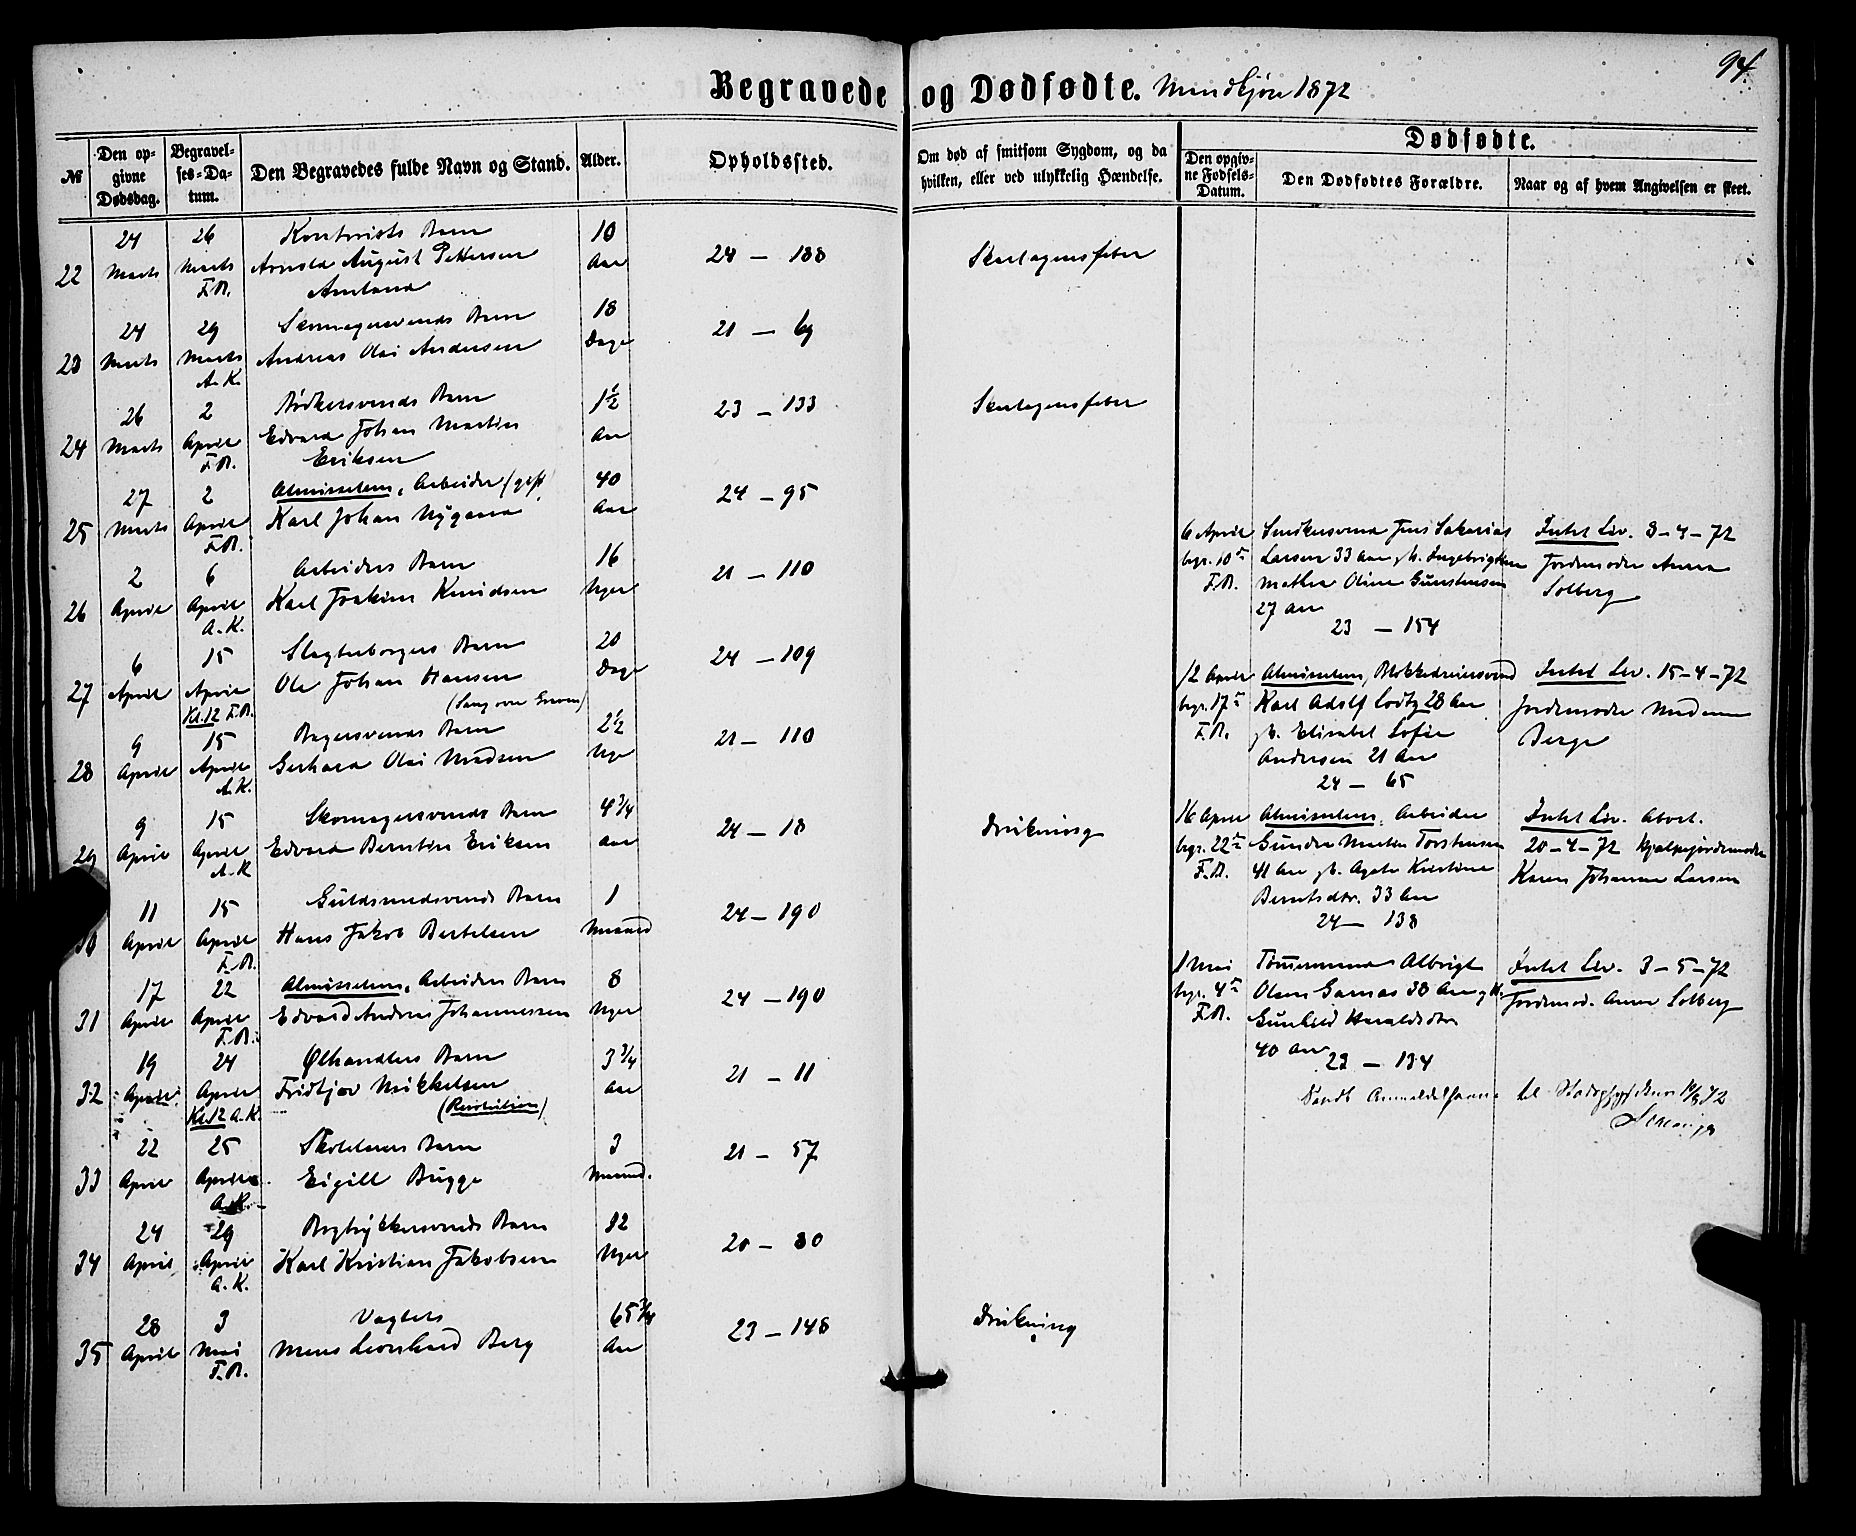 94.
Begravede og Dødfødte. Mandkjøn 1872
№
Den opgivne Dødsdag.
Begravelses-Datum.
Den Begravedes fulde Navn og Stand.
Alder.
Opholdssted.
Om død af smitsom Sygdom, og da hvilken, eller ved ulykkelig Hændelse.
Dødfødte.
Den opgivne Fødsels-Datum.
Den Dødfødtes Forældre.
Naar og af hvem Angivelsen er skeet.
22 24 Marts 26 Marts F.B. Kontorists Barn
August Pettersen
10 Aar 24 – 188 Skarlagensfeber
23 24 Marts 29 Marts A.K. Skomagersvends Barn
Andreas Olai Andersen
18 Dage 21 – 69
24 26 Marts 2 April F.B. Bødkersvends Barn
Edvard Johan Martin
Eriksen
1½ Aar 23 – 133 Skarlagensfeber
25 27 Marts 2 April F.B. Almisselem, Arbeider (gift)
Karl Johan Nygaard
40 Aar 24 – 95
26 2 April 6 April A.K. Arbeiders Barn
Karl Joakim Knudsen
16 Uger 21 – 110
27 6 April 15 April Kl. 12 F.B. Slagterborgers Barn
Ole Johan Hansen
(Sang over Graven)
20 Dage 24 – 109
28 9 April 15 April A.K. Bagersvends Barn
Gerhard Olai Madsen
2½ Uge 21 – 110
29 9 April 15 April A.K. Skomagersvends Barn
Edvard Berntin Eriksen
4¾ Aar 24 – 18 Drukning
30 11 April 15 April F.B. Guldsmedsvends Barn
Hans Jakob Bertelsen
1 Maaned 24 – 190
31 17 April 22 April F.B. Almisselem, Arbeiders Barn
Edvard Andreas Johannessen
8 Uger 24 – 190
32 19 April 24 April Kl. 12 A.K. Ølhandlers Barn
Fridtjov Mikkelsen
3¾ Aar 21 – 11
33 22 April 25 April A.K. Barn
Eigill Bugge
3 Maaned. 21 – 57
34 24 April 29 April A.K. Bogtrykkersvends Barn
Karl Kristian Jakobsen
12 Uger 20 – 30
35 28 April 3 Mai F.B. Vægters
Mons Leonhard Berg
65¾ Aar 23 – 148 Drukning
6 April begr. 10de F.B. Snedkersvend Jens Sakarias
Larsen 33 Aar g.h. Ingebrigtine
Mathea Oline Gunstensen
27 Aar
23 – 154
Intet Liv. 8-4-72
Jordemoder Anna
Solberg
12 April begr. 17de F.B. Almisselem, Blokkedreiersvend
Karl Adolf Lodtz 28 Aar
g.h. Elisabet Sofie
Andersen 21 Aar
24 – 65
Intet Liv. 15-4-72
Jordemoder Madam
Berge
16 April begr. 22de F.B. Almisselem, Arbeider
Gunder Martin Torstensen
41 Aar g.h. Agate Kristine
Berntsdtr. 33 Aar
24 – 138
Intet Liv. Abort.
20-4-72 Hjælpejordemoder
Karen Johanne Larsen
1 Mai begr. 4de F.B. Tømmermand Albrigt
Olsen Garnæs 38 Aar g.h.
Gunhild Haraldsdtr
40 Aar
23 – 134
Intet Liv. 3-5-72
Jordemod. Anna Solberg
Sendt til